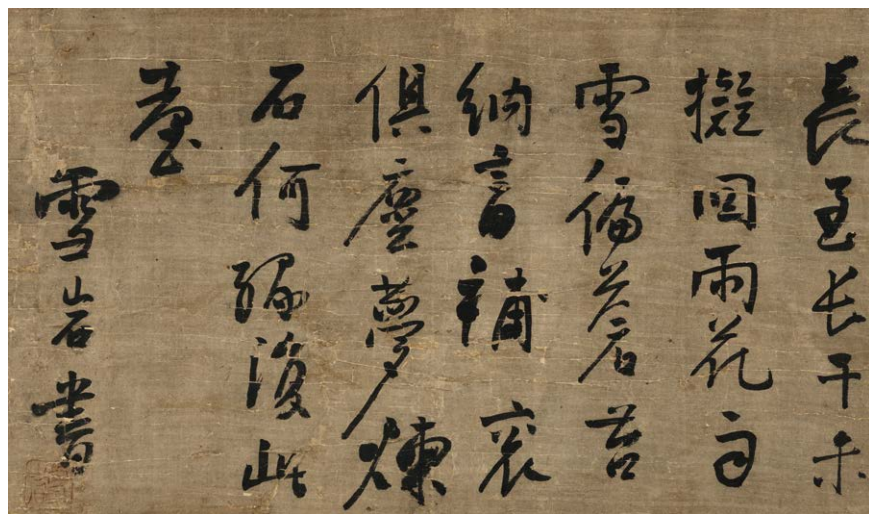 長至长干未
擬回雨花自
雪偏蒼苔
納言補衮
俱塵夢煉
石何緣復此
臺
雪岩書